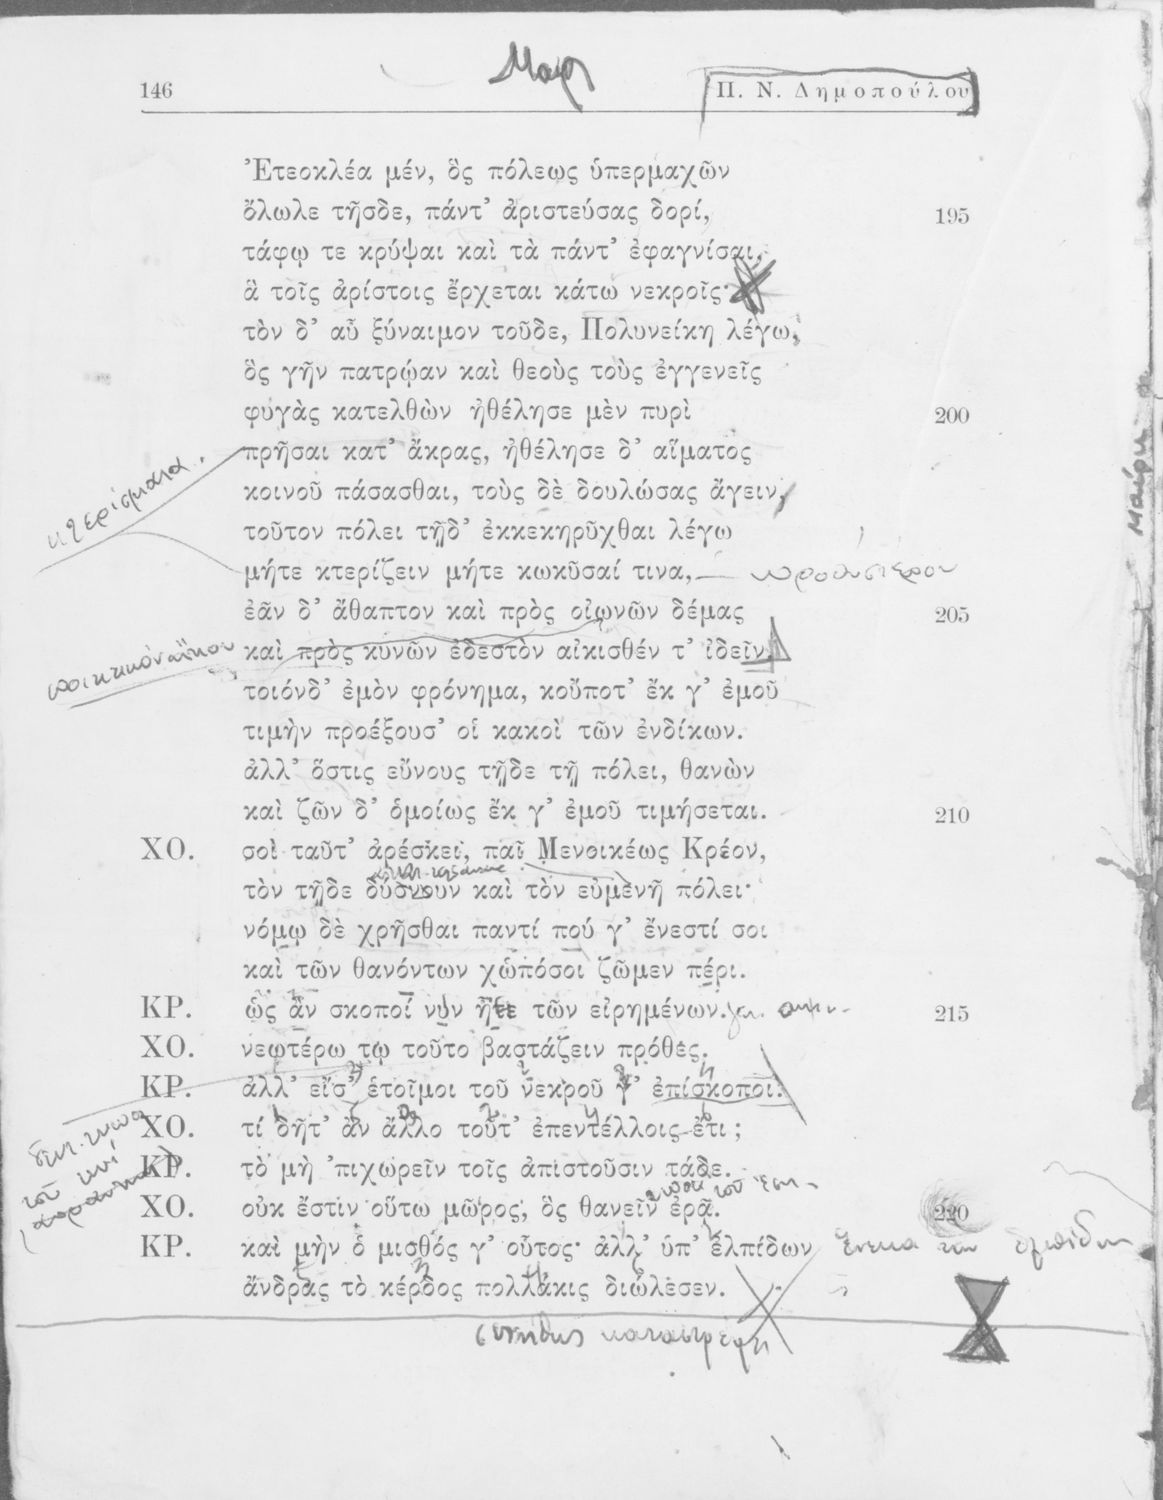 Μαιρη
146 Π. Ν. Δημοπούλου
Ἐτεοκλέα μέν, ὃς πόλεως ὑπερμαχῶν
ὄλωλε τῆσδε, πάντ’ ἀριστεύσας δορί, 195
τάφῳ τε κρύψαι καὶ τὰ πάντ’ ἐφαγνίσαι,
ἃ τοῖς ἀρίστοις ἔρχεται κάτω νεκροῖς·
τὸν δ’ αὖ ξύναιμον τοῦδε, Πολυνείκη λέγω,
ὃς γῆν πατρῴαν καὶ θεοὺς τοὺς ἐγγενεῖς
φυγὰς κατελθὼν ἠθέλησε μὲν πυρὶ 200
πρῆσαι κατ’ ἄκρας, ἠθέλησε δ’ αἵματος
κτερίσματα
κοινοῦ πάσασθαι, τοὺς δὲ δουλώσας ἄγειν,
τοῦτον πόλει τῇδ’ ἐκκεκηρῦχθαι λέγω
μήτε κτερίζειν μήτε κωκῦσαί τινα,
ἐᾶν δ’ ἄθαπτον καὶ πρὸς οἰωνῶν δέμας 205
καὶ πρὸς κυνῶν ἐδεστὸν αἰκισθέν τ’ ἰδεῖν.
τοιόνδ’ ἐμὸν φρόνημα, κοὔποτ’ ἔκ γ’ ἐμοῦ
τιμὴν προέξουσ’ οἱ κακοὶ τῶν ἐνδίκων.
ἀλλ’ ὅστις εὔνους τῇδε τῇ πόλει, θανὼν
καὶ ζῶν δ’ ὁμοίως ἔκ γ’ ἐμοῦ τιμήσεται. 210
ΧΟ. σοὶ ταῦτ’ ἀρέσκει, παῖ Μενοικέως Κρέον,
τὸν τῇδε δύσνουν καὶ τὸν εὐμενῆ πόλει·
νόμῳ δὲ χρῆσθαι παντί πού γ’ ἔνεστί σοι
καὶ τῶν θανόντων χὡπόσοι ζῶμεν πέρι.
ΚΡ. ὡς ἂν σκοποί νυν ἦτε τῶν εἰρημένων. 215
ΧΟ. νεωτέρῳ τῳ τοῦτο βαστάζειν πρόθες.
ΚΡ. ἀλλ’ εἴσ’ ἑτοῖμοι τοῦ νεκροῦ γ’ ἐπίσκοποι.
ΧΟ. τί δῆτ’ ἂν ἄλλο τοῦτ’ ἐπεντέλλοις ἔτι;
ΚΡ. τὸ μὴ ’πιχωρεῖν τοῖς ἀπιστοῦσιν τάδε.
ΧΟ. οὐκ ἔστιν οὕτω μῶρος, ὃς θανεῖν ἐρᾷ. 220
ΚΡ. καὶ μὴν ὁ μισθός γ’ οὗτος· ἀλλ’ ὑπ’ ἐλπίδων
ἄνδρας τὸ κέρδος πολλάκις διώλεσεν.
Μαίρη